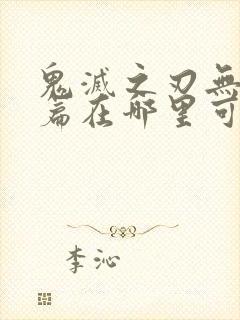 鬼滅之刃無
篇在哪里可
李沁